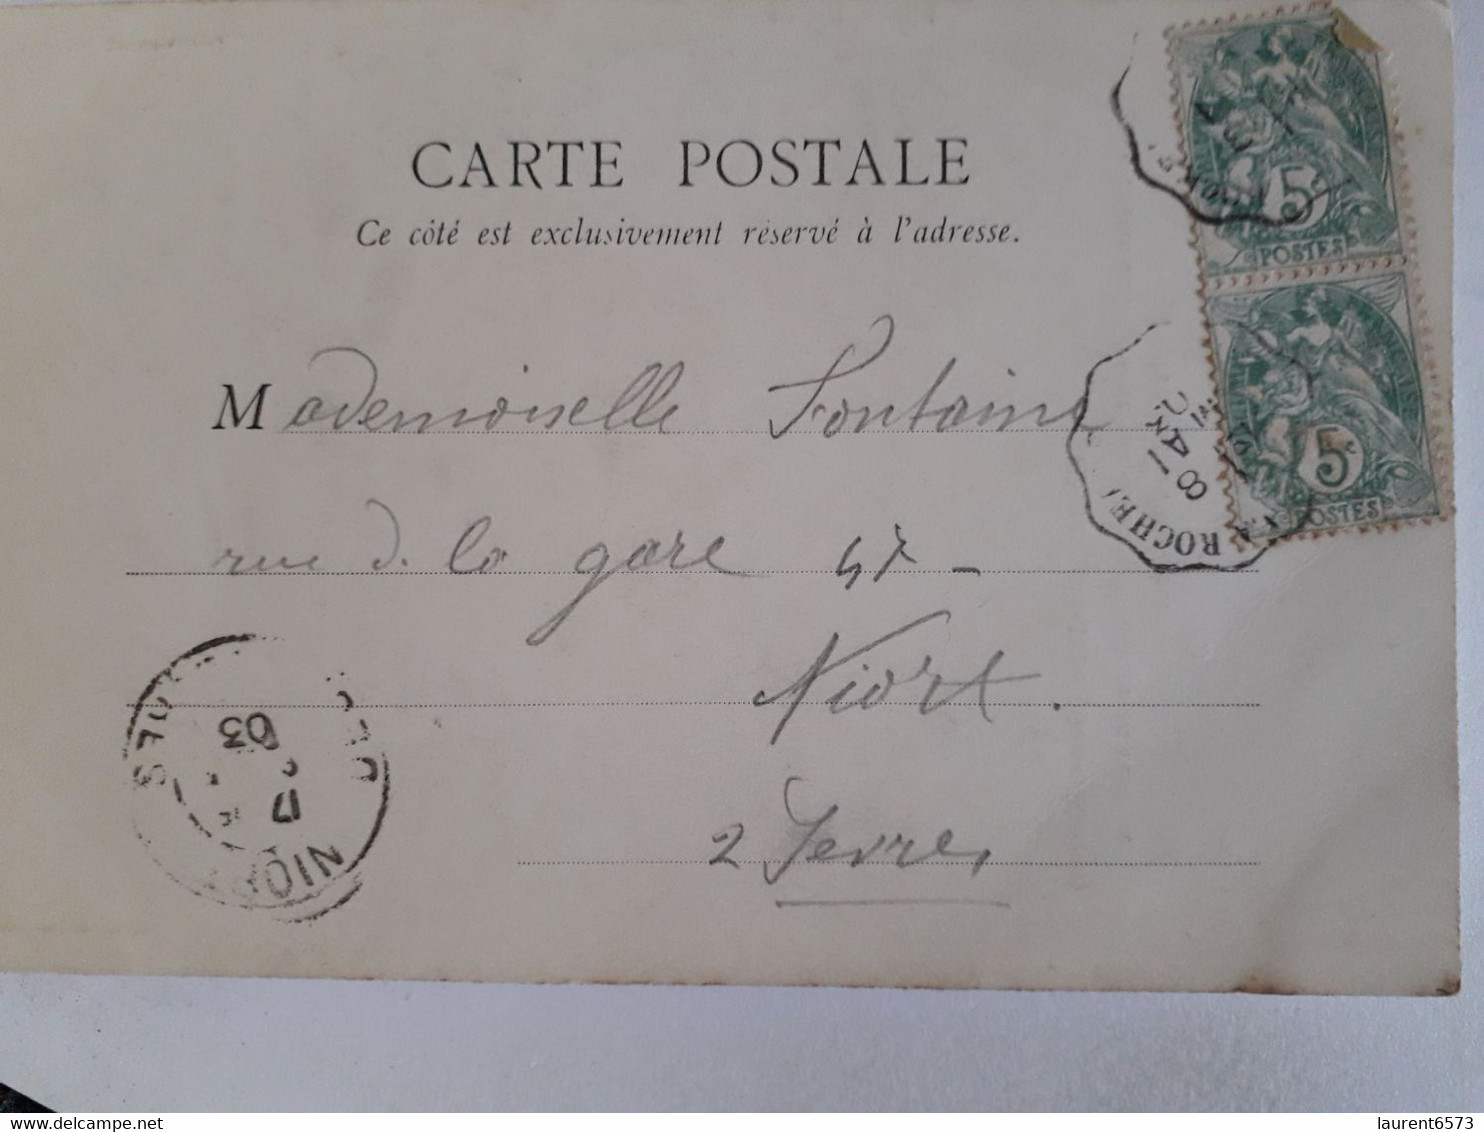 CARTE POSTALE
Ce côté est exclusivement réservé à l'adresse.
Mademoiselle Fontaine
rue de la gare 47 -
Niort.
2 Sevres
5c
POSTES
5c
POSTES
ROCHE
NIORT
17
03
laurent6573